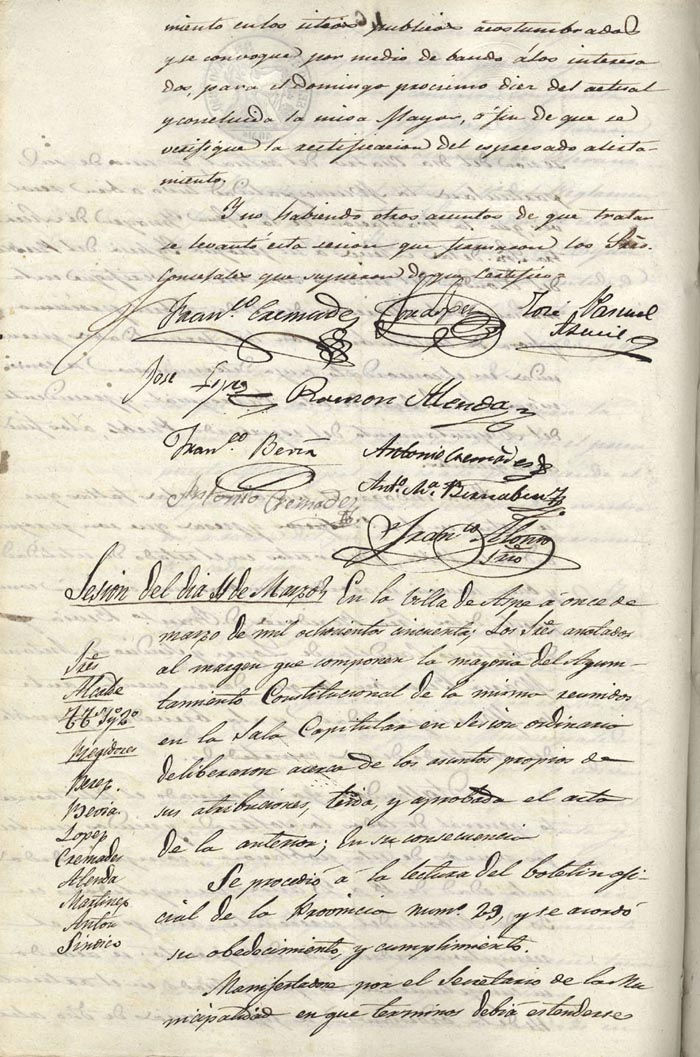 miento en los sitios publicos acostumbrados
y se convoque por medio de bando á los interesa
dos, para el domingo procsimo diez del actual
y concluida la misa Mayor, á fin de que se
verifique la rectificacion del espresado alista-
miento.
Y no habiendo otros asuntos de que tratar
se levantó esta sesion que firmaron los Sres.
Concejales que supieron de que certifico=
Fran.co Cremades
Jose Lopez
José Pascual
Jose Lopez
Ramon Alenda
Fran.co Beviá
Antonio Cremades
Antonio Cremades
Ant.o M.a Bernabeu
Fran.co Alonso
Srio
Sesion del dia 11 de Marzo
En la Villa de Aspe á once de
marzo de mil ochocientos cincuenta; Los Sres anotados
al margen que componen la mayoria del Ayun-
tamiento Constitucional de la misma reunidos
en la Sala Capitular en Sesion ordinaria
deliberaron acerca de los asuntos propios de
sus atribuciones, leida, y aprobada el acta
de la anterior; En su consecuencia
Sres
Alcalde
TT.s 1º y 2º
Regidores
Perez
Bevia
Lopez
Cremades
Alenda
Martinez
Antón
Sindico
Se procedió á la lectura del boletin ofi-
cial de la Provincia num.o 29, y se acordó
su obedecimiento, y cumplimiento.
Manifestadose por el Secretario de la Mu
nicipalidad en que terminos debiá estenderse